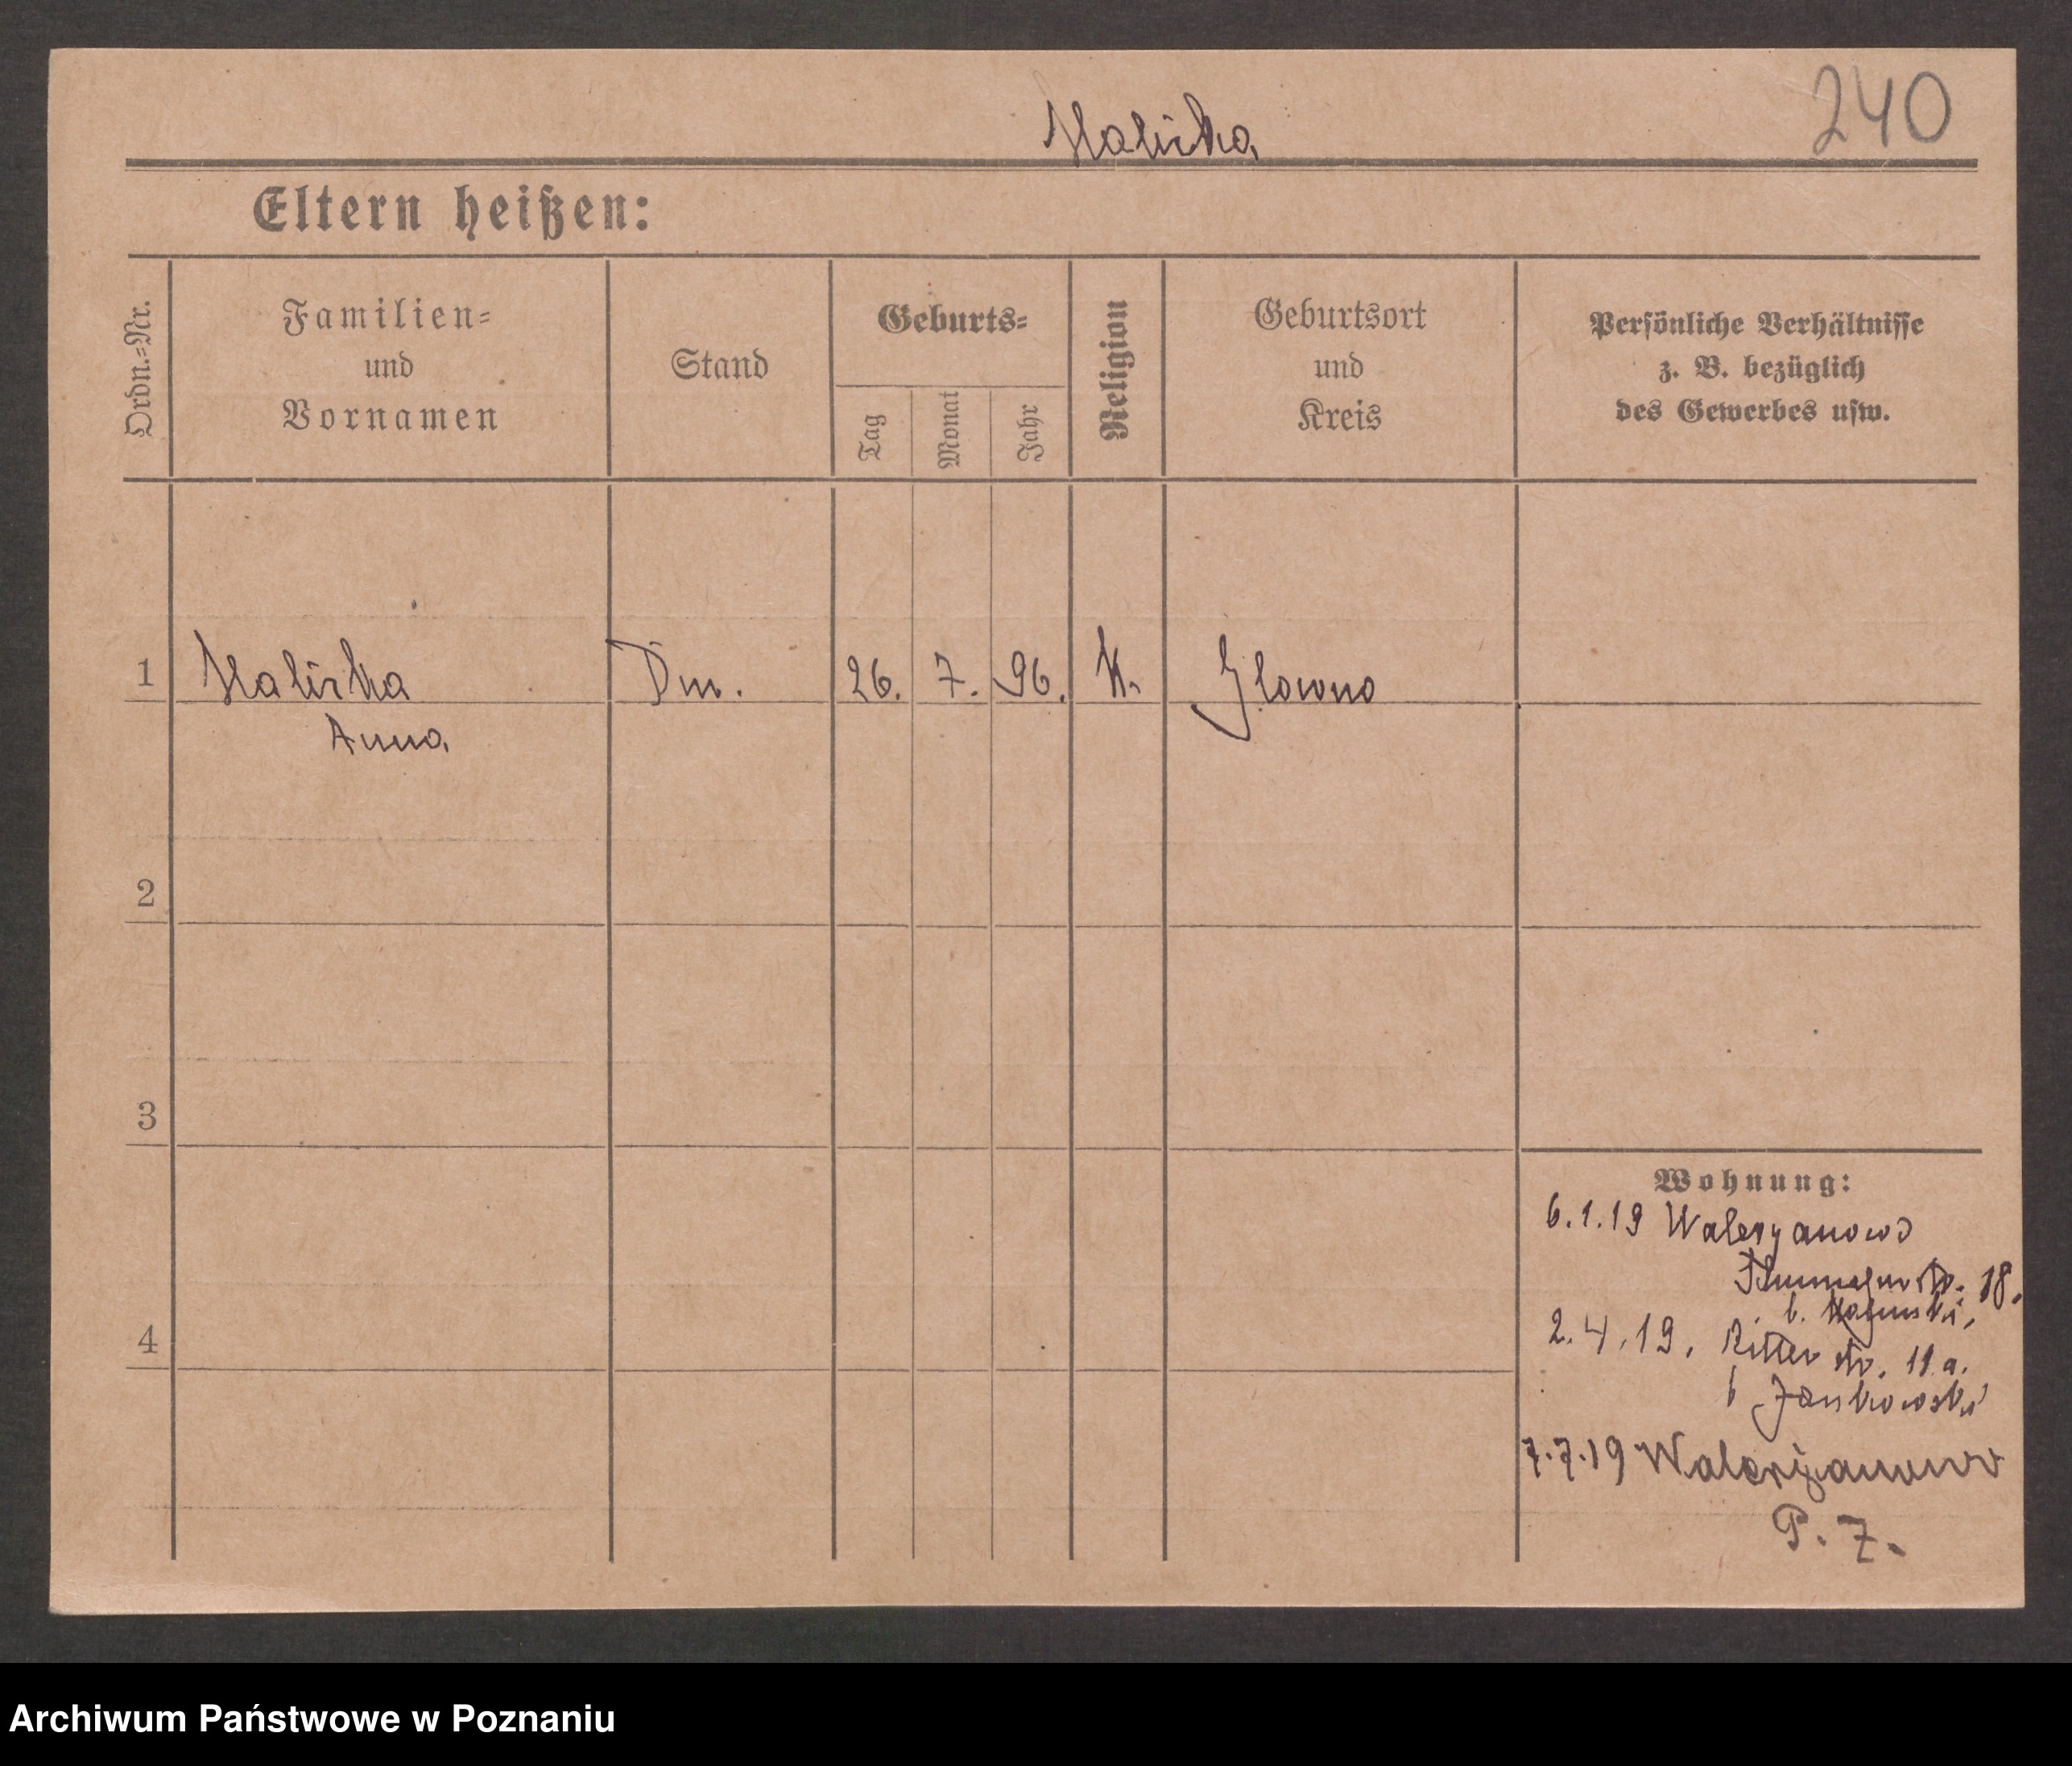 240
Halirka
Eltern heißen:
Ordn.=Nr.
Familien=
und
Vornamen
Stand
Geburts=
Tag
Monat
Jahr
Religion
Geburtsort
und
Kreis
Persönliche Verhältnisse
z. B. bezüglich
des Gewerbes usw.
1 Halirka Dm. 26. 7. 96. K. Glowno
Anna
2
3
Wohnung:
6.1.19 Waleryanowo
18.
b.
4
2.4.19. Ritter str. 11a.
b Jankowski
7.7.19 Waleryanowo
P. 7.
Archiwum Państwowe w Poznaniu